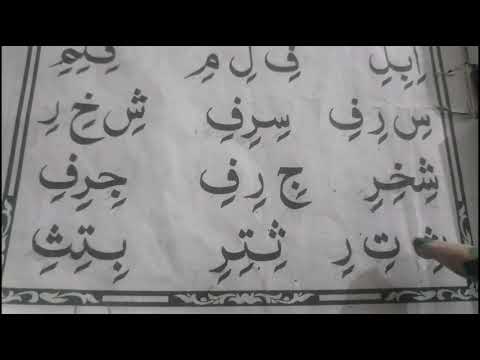 اِبِلِ فِ لِ مِ فِلِمِ
سِ رِ فِ سِرِفِ شِ خِ رِ
شِخِرِ جِ رِ فِ جِرِفِ
ثِ تِ رِ ثِتِرِ بِتِثِ